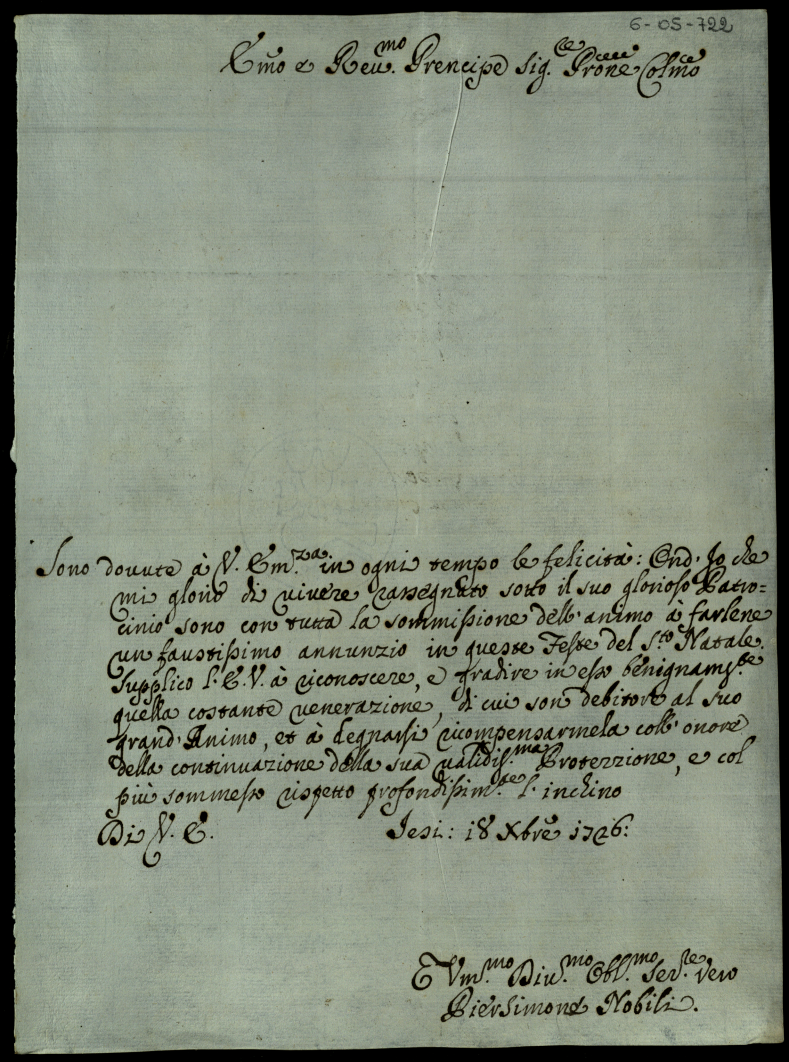 6-05-722
Em̃o e Reu.mo Prencipe Sig.re Prone Colmo
Sono douute à V. Em.za in ogni tempo le felicità: Ond' Io che
mi glorio di viuere rassegnato sotto il suo glorioso Patro=
cinio sono con tutta la sommissione dell' animo à farlene
un faustissimo annunzio in queste Feste del S.to Natale.
Supplico l' E. V. à riconoscere, e gradire in esso benignam.te
quella costante venerazione, di cui son debitore al suo
grand' Animo, et à degnarsi ricompensarmela coll' onore
della continuazione della sua validis.ma Protezzione, e col
più sommesso rispetto profondissim.te l' inchino
Di V. E. Iesi: 18 Xbre 1726:
Vm.mo Diu.mo Obl.mo Ser.re vero
Piersimone Nobili.